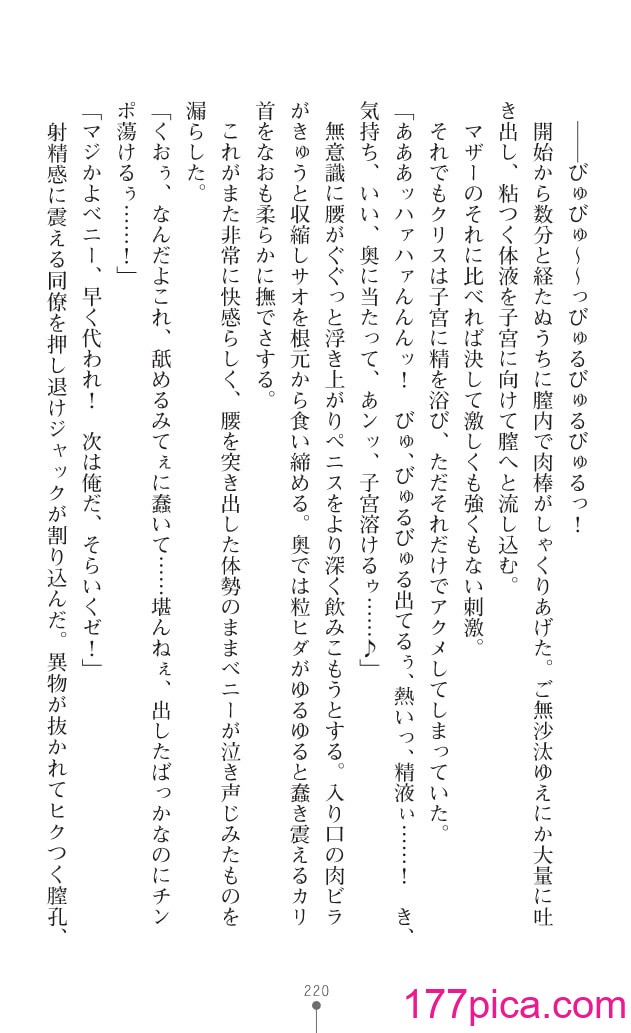 ――びゅびゅ～～っびゅるびゅるびゅるっ！
開始から数分と経たぬうちに膣内で肉棒がしゃくりあげた。ご無沙汰ゆえにか大量に吐
き出し、粘つく体液を子宮に向けて膣へと流し込む。
マザーのそれに比べれば決して激しくも強くもない刺激。
それでもクリスは子宮に精を浴び、ただそれだけでアクメしてしまっていた。
「あああッハァハァんんんッ！　びゅ、びゅるびゅる出てるぅ、熱いっ、精液ぃ……！　き、
気持ち、いい、奥に当たって、あンッ、子宮溶けるゥ……♪」
無意識に腰がぐぐっと浮き上がりペニスをより深く飲みこもうとする。入り口の肉ビラ
がきゅうと収縮しサオを根元から食い締める。奥では粒ヒダがゆるゆると蠢き震えるカリ
首をなおも柔らかに撫でさする。
これがまた非常に快感らしく、腰を突き出した体勢のままベニーが泣き声じみたものを
漏らした。
「くおぅ、なんだよこれ、舐めるみてぇに蠢いて……堪んねぇ、出したばっかなのにチン
ポ蕩けるぅ……！」
「マジかよベニー、早く代われ！　次は俺だ、そらいくぜ！」
射精感に震える同僚を押し退けジャックが割り込んだ。異物が抜かれてヒクつく膣孔、
220
177pica.com